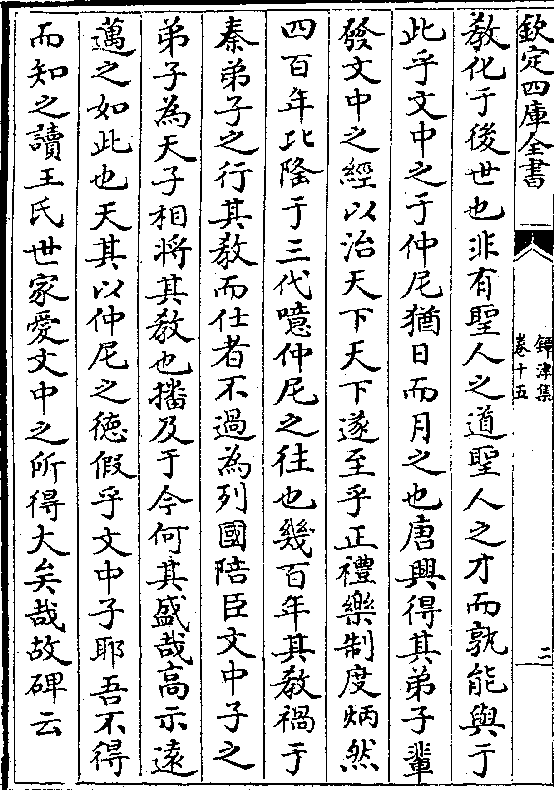 欽定四庫全書
鐔津集
卷十五
三
教化于後世也非有聖人之道聖人之才而孰能與于
此乎文中之于仲尼猶日而月之也唐興得其弟子輩
發文中之經以治天下天下遂至乎正禮樂制度炳然
四百年比隆于三代噫仲尼之徃也幾百年其教禍于
秦弟子之行其教而仕者不過為列國陪臣文中子之
弟子為天子相將其教也播及于今何其盛哉高示遠
邁之如此也天其以仲尼之徳假乎文中子耶吾不得
而知之讀王氏世家愛文中之所得大矣哉故碑云